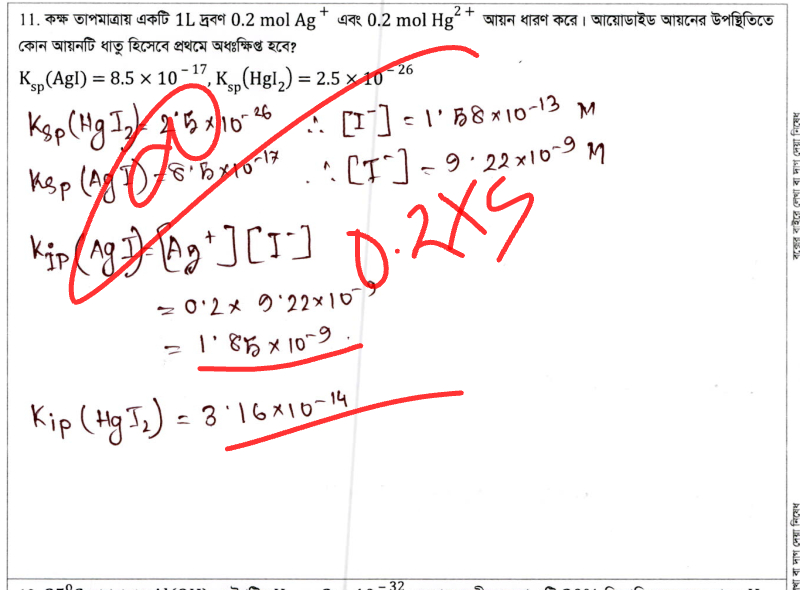 11. কক্ষ তাপমাত্রায় একটি 1L দ্রবণ 0.2 mol Ag⁺ এবং 0.2 mol Hg²⁺ আয়ন ধারণ করে। আয়োডাইড আয়নের উপস্থিতিতে
কোন আয়নটি ধাতু হিসেবে প্রথমে অধঃক্ষিপ্ত হবে?
K_sp(AgI) = 8.5 × 10⁻¹⁷, K_sp(HgI₂) = 2.5 × 10⁻²⁶
Ksp(HgI₂) = 2.5 × 10⁻²⁶ ∴ [I⁻] = 1.58 × 10⁻¹³ M
Ksp(AgI) = 8.5 × 10⁻¹⁷ ∴ [I⁻] = 9.22 × 10⁻⁹ M
Kip(AgI) = [Ag⁺][I⁻]
0.2×S
= 0.2 × 9.22 × 10⁻⁹
= 1.85 × 10⁻⁹.
Kip(HgI₂) = 3.16 × 10⁻¹⁴